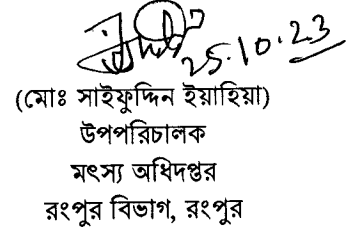 25.10.23
(মোঃ সাইফুদ্দিন ইয়াহিয়া)
উপপরিচালক
মৎস্য অধিদপ্তর
রংপুর বিভাগ, রংপুর